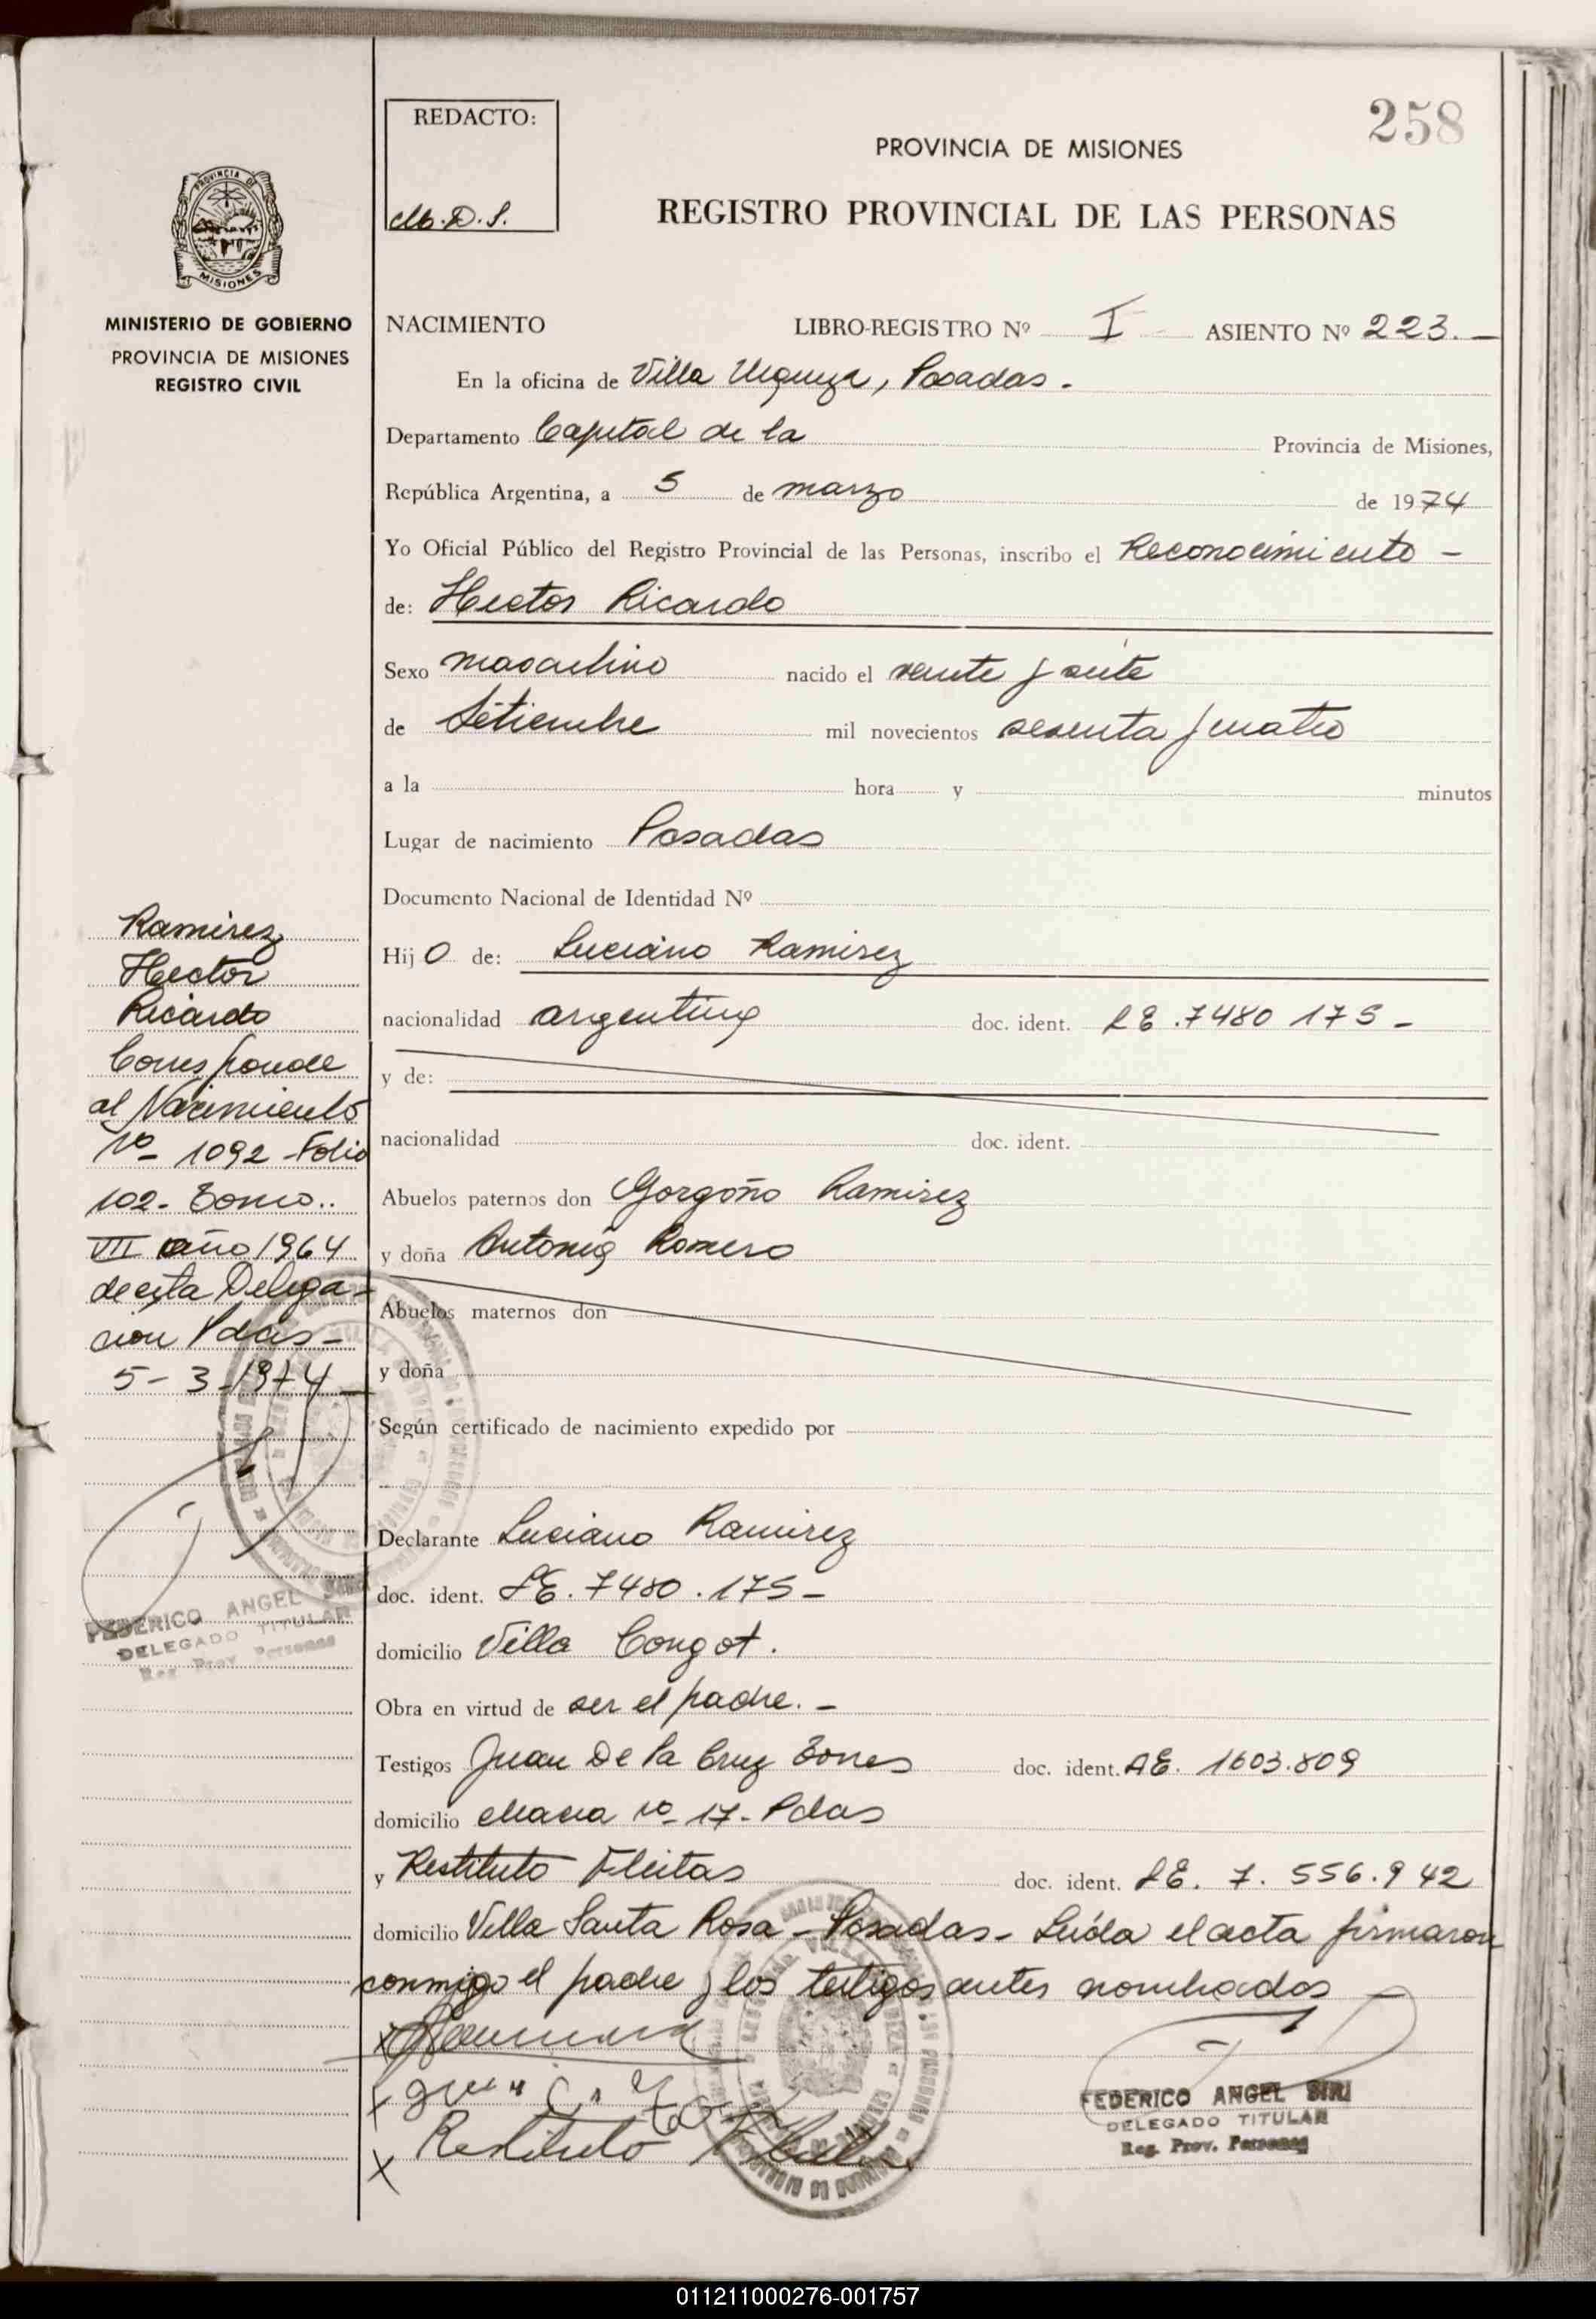 258
REDACTO:
M.D.S.
PROVINCIA DE MISIONES
REGISTRO PROVINCIAL DE LAS PERSONAS
PROVINCIA DE
MISIONES
MINISTERIO DE GOBIERNO
PROVINCIA DE MISIONES
REGISTRO CIVIL
NACIMIENTO LIBRO-REGISTRO Nº I ASIENTO Nº 223.-
En la oficina de Villa Urquiza, Posadas.
Departamento Capital de la Provincia de Misiones,
República Argentina, a 5 de marzo de 1974
Yo Oficial Público del Registro Provincial de las Personas, inscribo el Reconocimiento -
de: Hector Ricardo
Sexo masculino nacido el veinte y siete
de Setiembre mil novecientos sesenta y cuatro
a la hora y minutos
Lugar de nacimiento Posadas
Documento Nacional de Identidad Nº
Hijo de: Luciano Ramirez
nacionalidad argentino doc. ident. LE.7480 175-
y de:
nacionalidad doc. ident.
Abuelos paternos don Gorgoño Ramirez
y doña Antonia Romero
Abuelos maternos don
y doña
Según certificado de nacimiento expedido por
Declarante Luciano Ramirez
doc. ident. LE. 7480.175-
domicilio Villa Congot.
Obra en virtud de ser el padre.-
Testigos Juan De la Cruz Torres doc. ident. LE. 1603.809
domicilio chacra nº 17- Pdas
y Restituto Fleitas doc. ident. LE. 7. 556.942
domicilio Villa Santa Rosa - Posadas - Leída el acta firmaron
conmigo el padre y los testigos antes nombrados
Restituto
FEDERICO ANGEL SIRI
DELEGADO TITULAR
Reg. Prov. Personas
Ramirez
Hector
Ricardo
Corresponde
al Nacimiento
nº 1092 - Folio
102- Tomo..
VII año 1964
de esta Delega-
cion Pdas-
5-3-1974
FEDERICO ANGEL SIRI
DELEGADO TITULAR
Reg. Prov. Personas
011211000276-001757